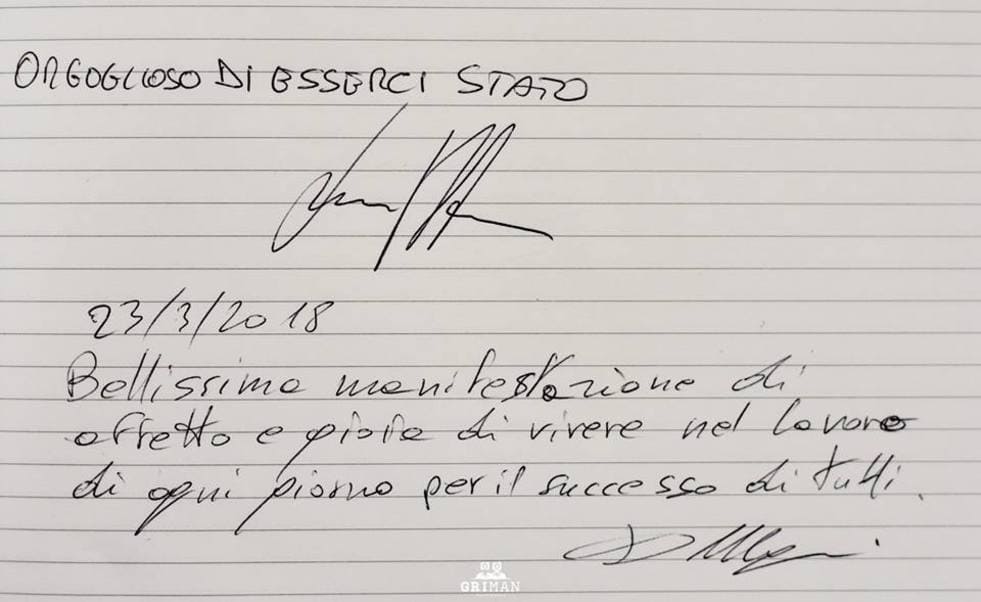 ORGOGLIOSO DI ESSERCI STATO
23/3/2018
Bellissima manifestazione di
affetto e gioia di vivere nel lavoro
di ogni giorno per il successo di tutti.
GRIMAN